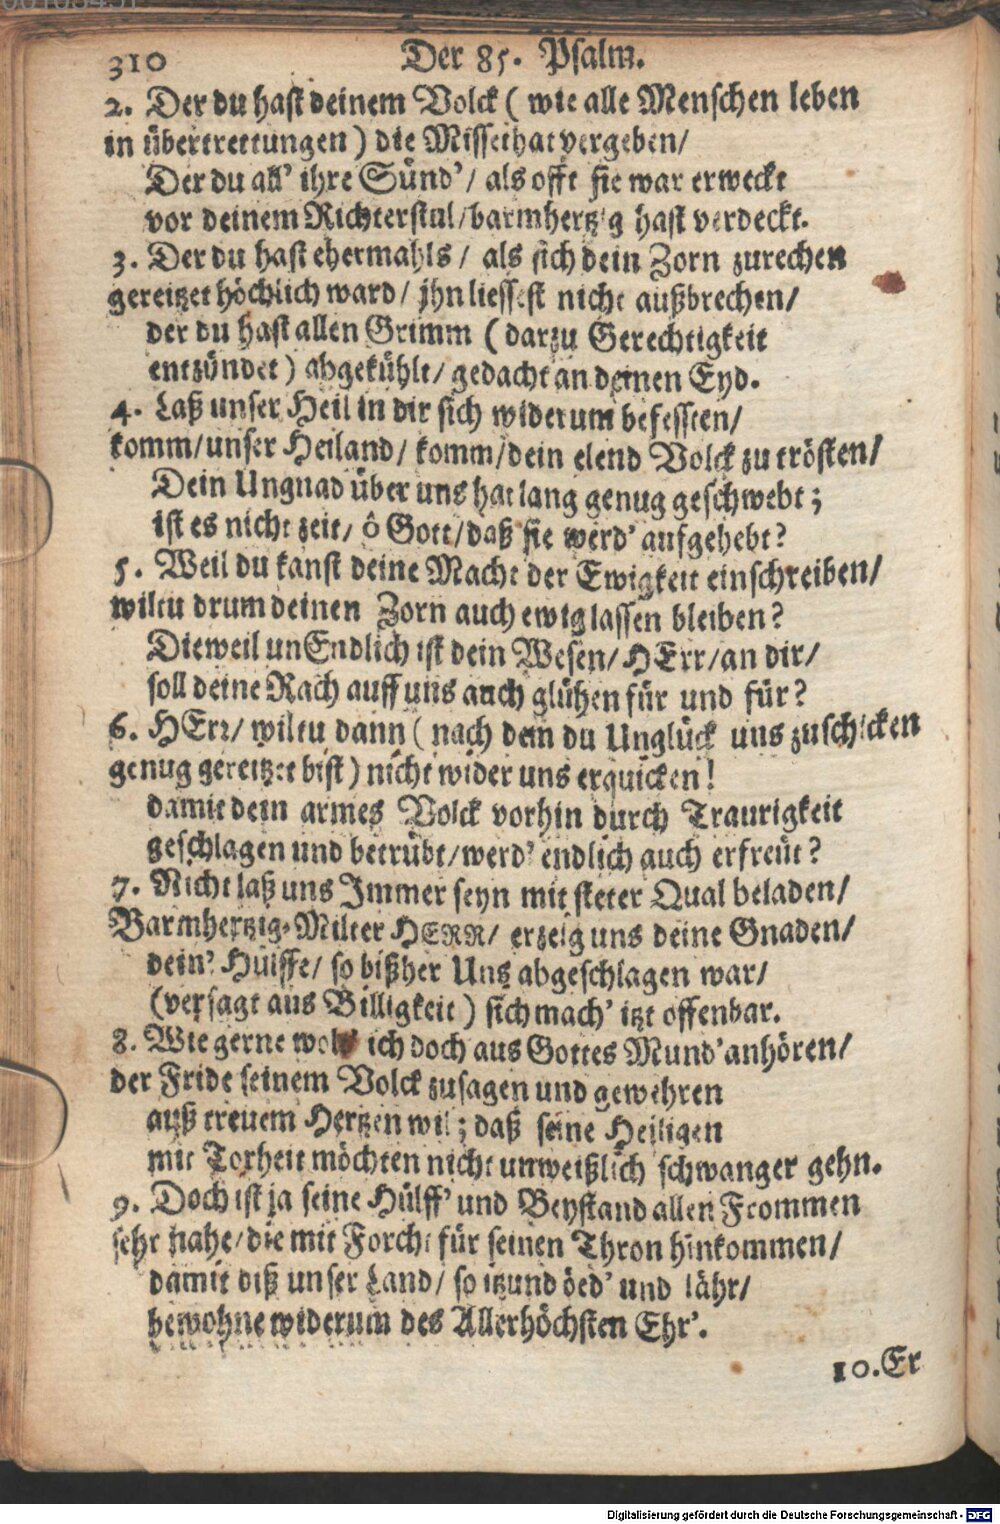 310 Der 85. Psalm.
2. Der du hast deinem Volck ( wie alle Menschen leben
in übertrettungen ) die Missethat vergeben/
Der du all' ihre Sünd'/ als offt sie war erweckt
vor deinem Richterstul/ barmhertzig hast verdeckt.
3. Der du hast ehermahls / als sich dein Zorn zurechen
gereitzet höchlich ward/ jhn liessest nicht außbrechen/
der du hast allen Grimm ( darzu Gerechtigkeit
entzündet ) abgekühlt/ gedacht an deinen Eyd.
4. Laß unser Heil in dir sich widerum befessten/
komm/ unser Heiland/ komm/ dein elend Volck zu trösten/
Dein Ungnad über uns hat lang genug geschwebt;
ist es nicht zeit/ ô Gott/ daß sie werd' aufgehebt?
5. Weil du kanst deine Macht der Ewigkeit einschreiben/
wiltu drum deinen Zorn auch ewig lassen bleiben?
Dieweil unEndlich ist dein Wesen/ HErr/ an dir/
soll deine Rach auff uns auch glühen für und für?
6. HErr/ wiltu dann ( nach dem du Unglück uns zuschicken
genug gereitzet bist ) nicht wider uns erquicken!
damit dein armes Volck vorhin durch Traurigkeit
geschlagen und betrübt/ werd' endlich auch erfreüt?
7. Nicht laß uns Immer seyn mit steter Qual beladen/
Barmhertzig-Milter HERR/ erzeig uns deine Gnaden/
dein' Hülffe/ so bißher Uns abgeschlagen war/
(versagt aus Billigkeit) sich mach' itzt offenbar.
8. Wie gerne wolt' ich doch aus Gottes Mund' anhören/
der Fride seinem Volck zusagen und gewehren
auß treuem Hertzen wil; daß seine Heiligen
mit Torheit möchten nicht unweißlich schwanger gehn.
9. Doch ist ja seine Hülff' und Beystand allen Frommen
sehr nahe/ die mit Forcht für seinen Thron hinkommen/
damit diß unser Land/ so itzund öed' und lähr/
bewohne widerum des Allerhöchsten Ehr'.
10. Er
Digitalisierung gefördert durch die Deutsche Forschungsgemeinschaft - DFG